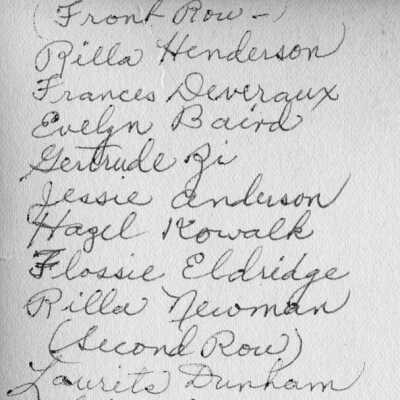 (Front Row -)
Rilla Henderson
Frances Deveraux
Evelyn Baird
Gertrude Zi
Jessie Anderson
Hazel Kowalk
Flossie Eldridge
Rilla Newman
(Second Row)
Laurits Dunham